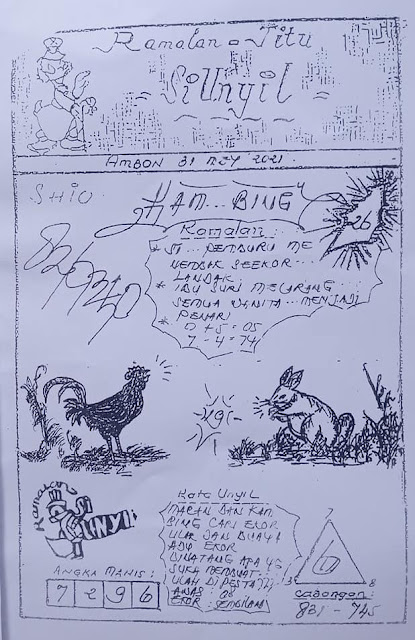 Ramalan - Jitu
Si Unyil
AMBON 31 MEY 2021
SHIO
HAM... BING
26
Ramalan:
* SI... PEMBURU ME
NEMBAK SEEKOR...
LANDAK
* IBU SURI MELARANG
SEMUA WANITA... MENJADI
PENARI
* 0 + 5 = 05
7 - 4 = 74
Ramalan
SI UNYIL
Kata Unyil
MACAN DAN KAM
BING CARI EKOR
ULAR DAN BUAYA
ADU EKOR
BINATANG APA YG
SUKA MEMBUAT
ULAH DI PESTA
AWAS: 08
EKOR: SEMBILAN
7
3
8
ANGKA MANIS:
7 2 9 6
Cabangan:
831 - 745